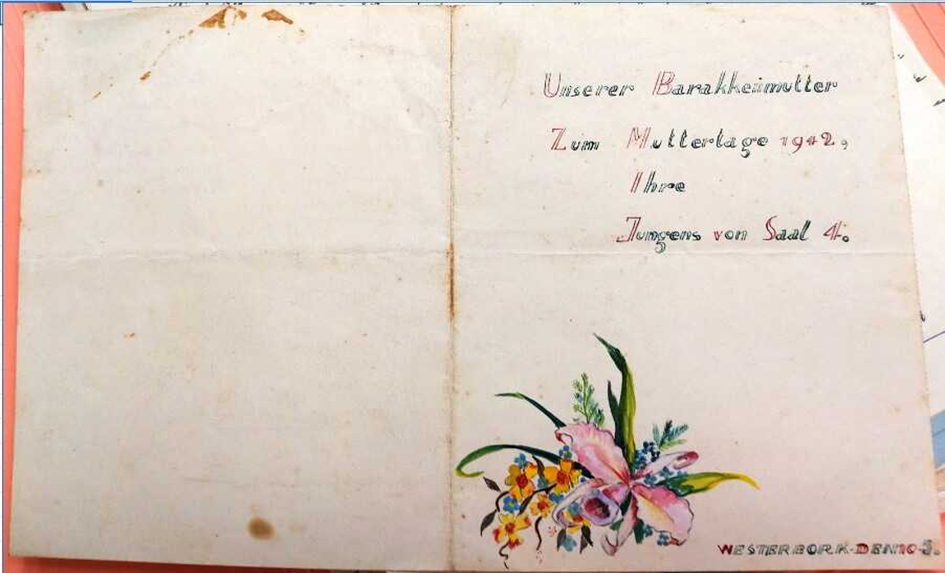 Unserer Barakkenmutter
Zum Muttertage 1942,
Ihre
Jungens von Saal 4.
WESTERBORK-DEN 10-5.